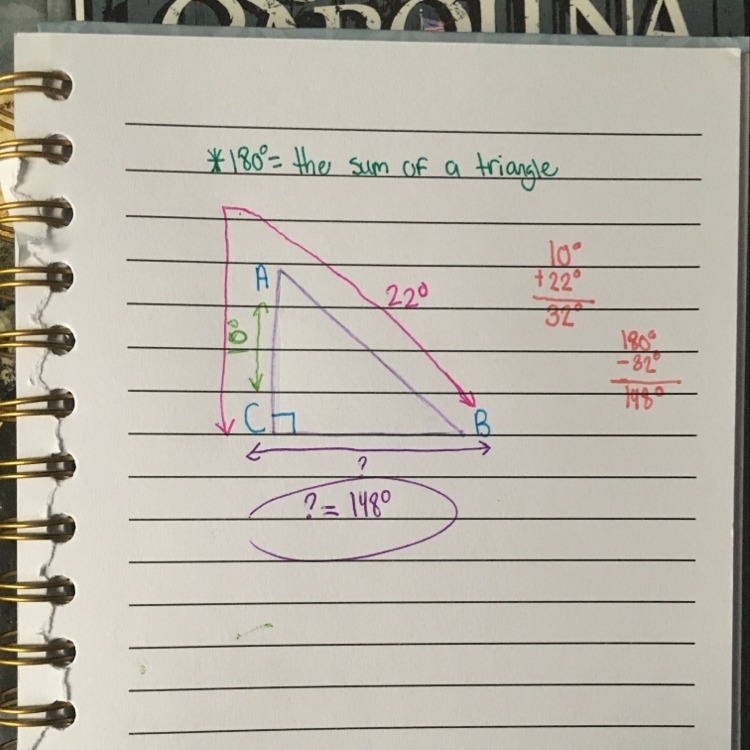 CAROLINA
*180°= the sum of a triangle
A
22°
10°
C
B
?
? = 148°
10°
+22°
32°
180°
-32°
148°